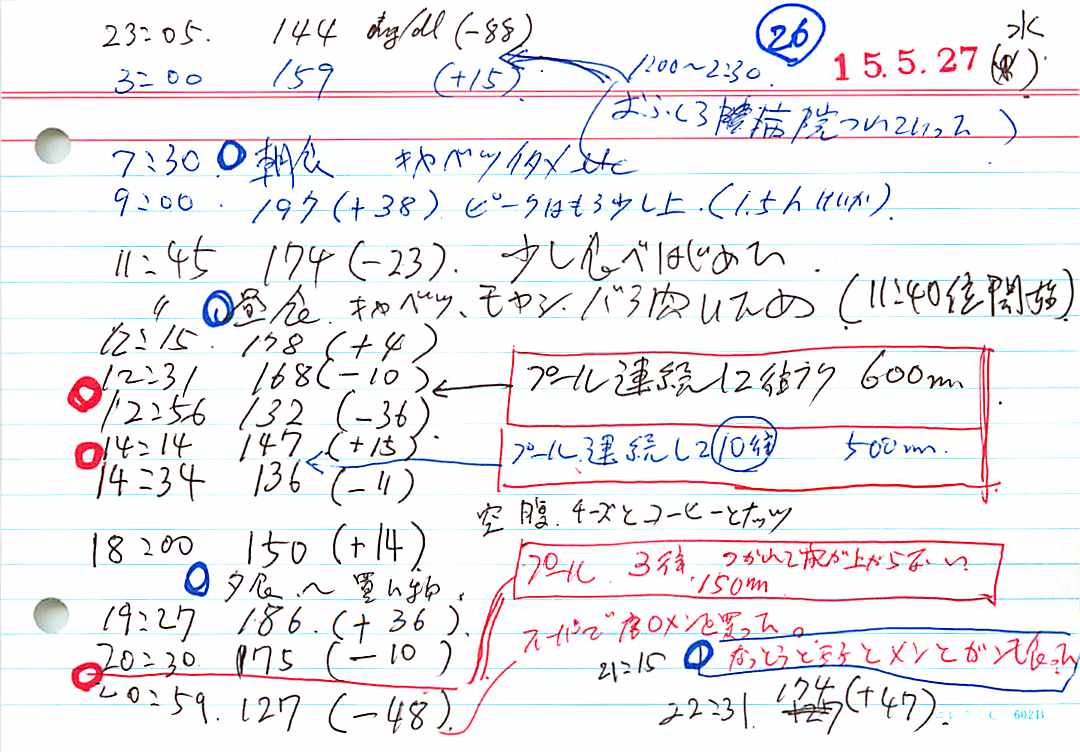 23:05. 144 mg/dl (-88) 26 水
3:00 159 (+15) 1:00~2:30. 15.5.27 ( ).
(おふくろ 病院ついていって)
7:30 朝食 キャベツイタメ etc
9:00. 197 (+38). ピークはもう少し上. (1.5h けいか).
11:45 174 (-23). 少し食べはじめい.
〃 昼食. キャベツ、モヤシ、バラ肉いため (11:40位開始)
12:15. 178 (+4)
12:31 168 (-10) プール連続して2往 600m.
12:56 132 (-36)
14:14 147 (+15) プール.連続して10往 500m.
14:34 136 (-11)
空腹. チーズとコーヒーとナッツ
18:00 150 (+14)
プール. 3往. つかれて腕が上がらない
150m
夕食 へ 買い物.
19:27 186. (+36). スーパーで 0メンを買った。
20:30. 175 (-10) 21:15 なっとうと玉子とメンと 食った
20:59. 127 (-48). 22:31. 174 (+47).
602B